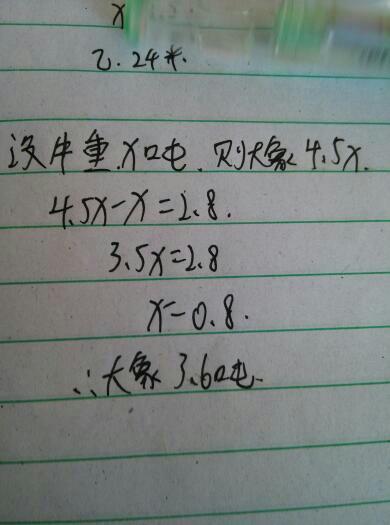 X
乙.24米.
设牛重x吨.则大象4.5x.
4.5x-x=2.8.
3.5x=2.8
x=0.8.
∴大象3.6吨.